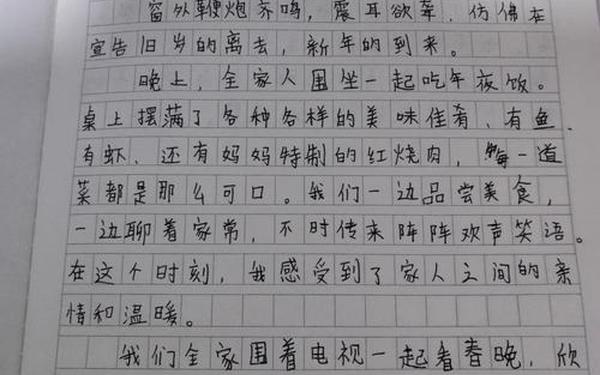 窗外鞭炮齐鸣，震耳欲聋，仿佛在
宣告旧岁的离去，新年的到来。
晚上，全家人围坐一起吃年夜饭。
桌上摆满了各种各样的美味佳肴、有鱼、
有虾、还有妈妈特制的红烧肉，每一道
菜都是那么可口。我们一边品尝美食，
一边聊着家常，不时传来阵阵欢声笑语。
在这个时刻，我感受到了家人之间的亲
情和温暖。
我们全家围着电视一起看春晚，欣